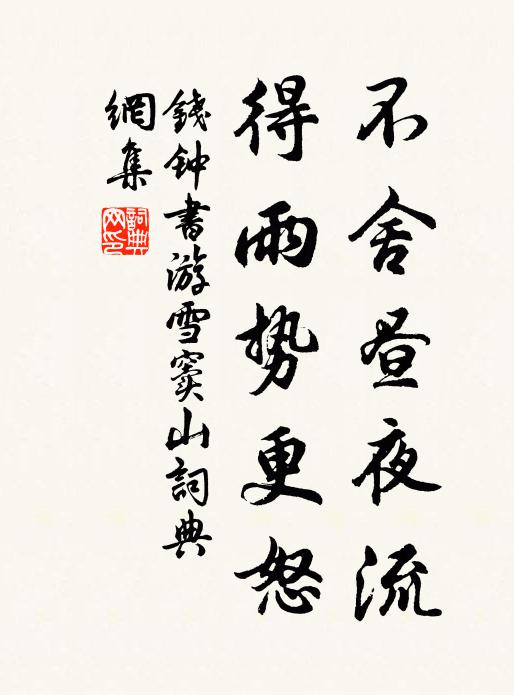 不舍昼夜流
得雨势更怒
錢钟書游雪窦山詞典
網集
詞典
网印